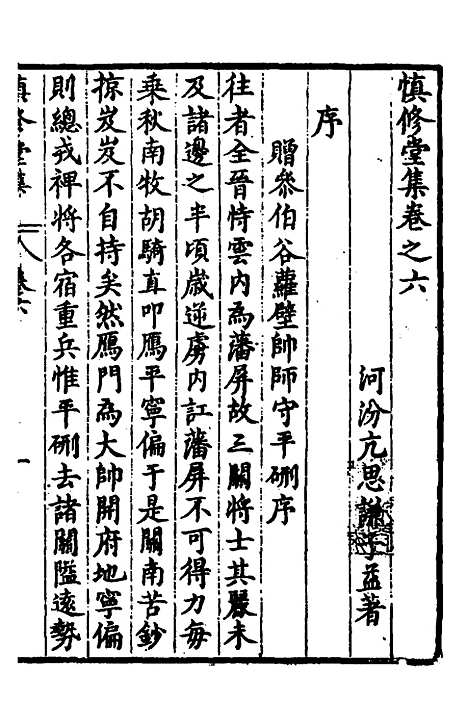 慎修堂集卷之六
河汾亢思謙子益著
序
贈叅伯谷蘿壁帥師守平硎序
往者全晉恃雲内為藩屏故三關將士其嚴未
及諸邊之半頃歲逆虜内訌藩屏不可得力每
乗秋南牧胡騎直叩鴈平寧偏于是關南苦鈔
掠岌岌不自持矣然鴈門為大帥開府地寧偏
則總戎裨將各宿重兵惟平硎去諸關隘逺勢
慎修堂集
卷六
一